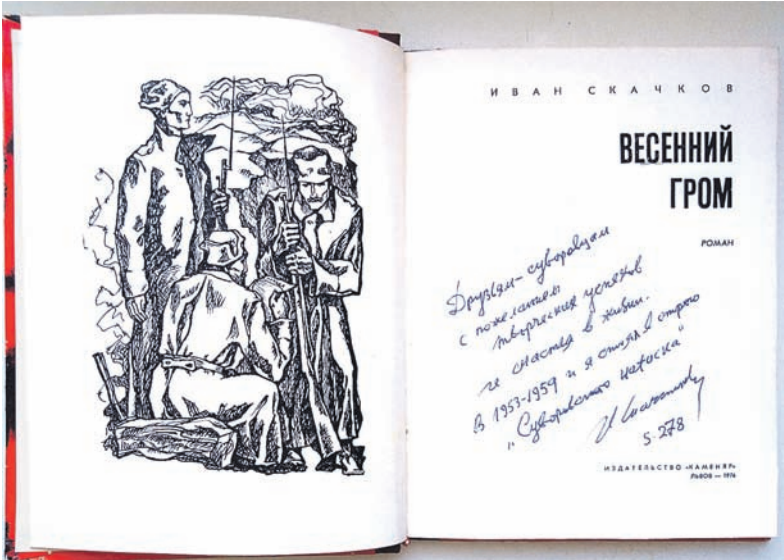 ИВАН СКАЧКОВ
ВЕСЕННИЙ
ГРОМ
РОМАН
Друзьям-суворовцам
с пожеланием
творческих успехов
и счастья в жизни.
В 1953-1959 и я стоял в строю
"Суворовского натиска"
5.278
ИЗДАТЕЛЬСТВО «КАМЕНЯР»
ЛЬВОВ — 1976